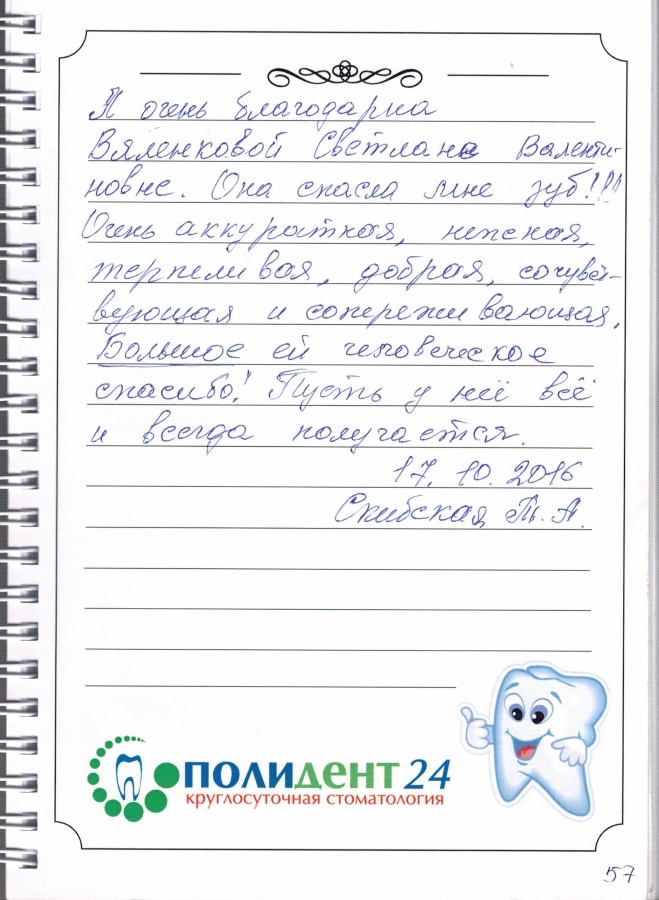 Я очень благодарна
Вяленковой Светлане Валенти-
новне. Она спасла мне зуб!!!
Очень аккуратная, нежная,
терпеливая, добрая, сочувст-
вующая и сопереживающая.
Большое ей человеческое
спасибо! Пусть у неё всё
и всегда получается.
17.10.2016
Скибская Т.А.
ПОЛИДЕНТ 24
круглосуточная стоматология
57